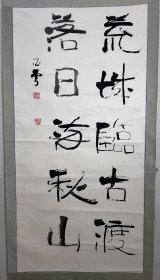 荒城臨古渡
落日滿秋山